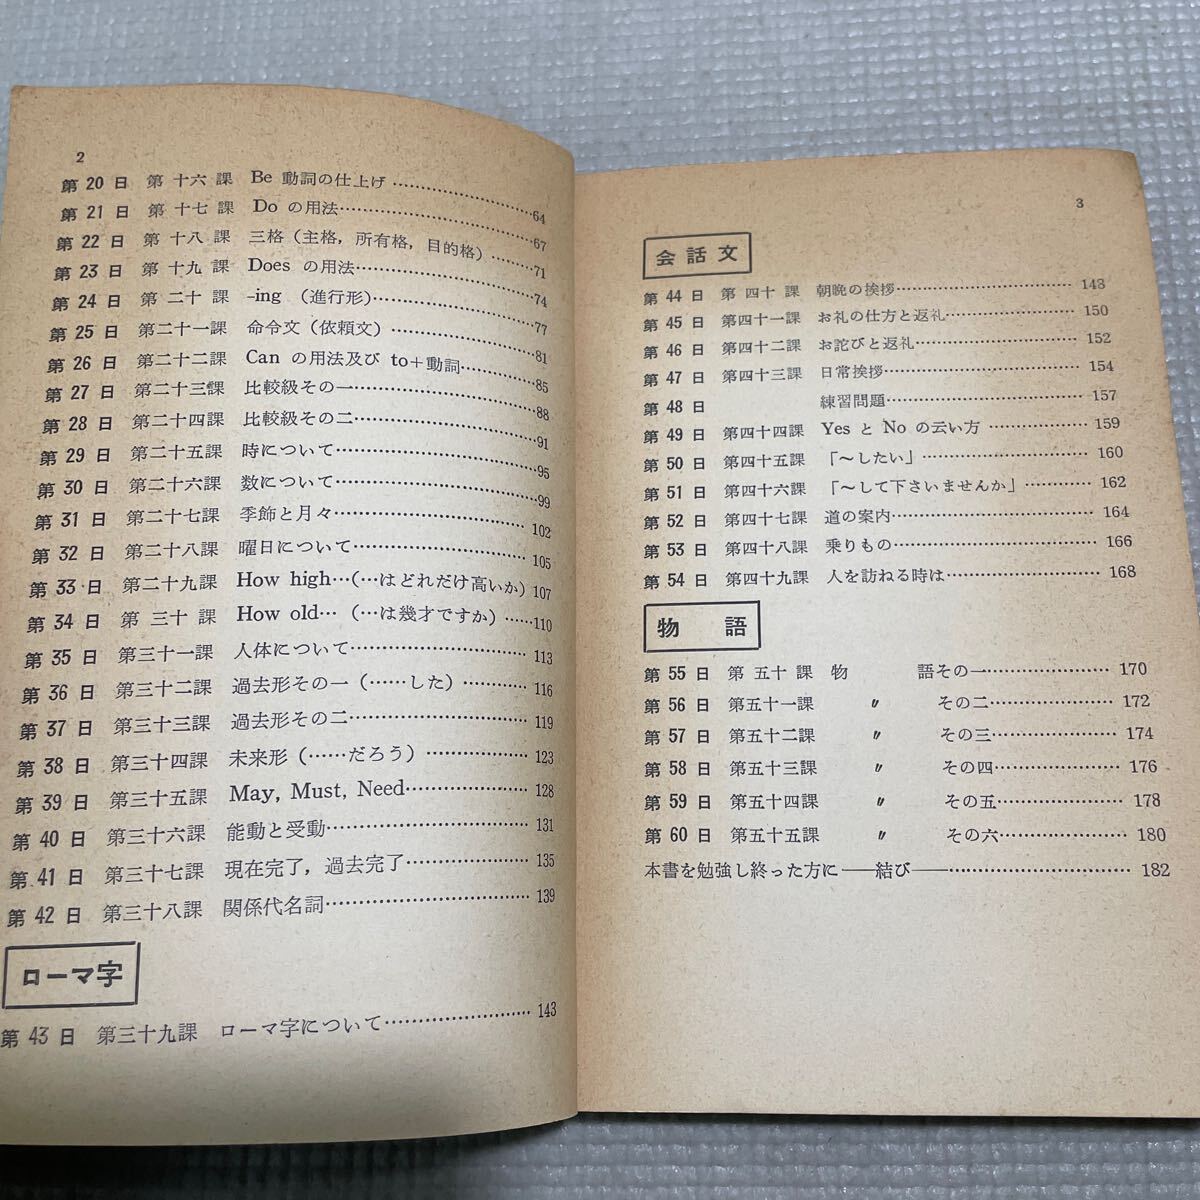 2
第20日 第十六課 Be 動詞の仕上げ……………64
第21日 第十七課 Do の用法……………67
第22日 第十八課 三格（主格，所有格，目的格）………71
第23日 第十九課 Does の用法……………74
第24日 第二十課 -ing （進行形）……………77
第25日 第二十一課 命令文（依頼文）……………81
第26日 第二十二課 Can の用法及び to+動詞………85
第27日 第二十三課 比較級その一……………88
第28日 第二十四課 比較級その二……………91
第29日 第二十五課 時について……………95
第30日 第二十六課 数について……………99
第31日 第二十七課 季節と月々……………102
第32日 第二十八課 曜日について……………105
第33日 第二十九課 How high…（…はどれだけ高いか）107
第34日 第三十課 How old…（…は幾才ですか）……110
第35日 第三十一課 人体について……………113
第36日 第三十二課 過去形その一（……した）………116
第37日 第三十三課 過去形その二……………119
第38日 第三十四課 未来形（……だろう）……………123
第39日 第三十五課 May, Must, Need……………128
第40日 第三十六課 能動と受動……………131
第41日 第三十七課 現在完了，過去完了……………135
第42日 第三十八課 関係代名詞……………139
ローマ字
第43日 第三十九課 ローマ字について……………143
3
会話文
第44日 第四十課 朝晩の挨拶……………143
第45日 第四十一課 お礼の仕方と返礼……………150
第46日 第四十二課 お詫びと返礼……………152
第47日 第四十三課 日常挨拶……………154
第48日 練習問題……………157
第49日 第四十四課 Yes と No の云い方……………159
第50日 第四十五課 「～したい」……………160
第51日 第四十六課 「～して下さいませんか」………162
第52日 第四十七課 道の案内……………164
第53日 第四十八課 乗りもの……………166
第54日 第四十九課 人を訪ねる時は……………168
物語
第55日 第五十課 物語その一……………170
第56日 第五十一課 〃 その二……………172
第57日 第五十二課 〃 その三……………174
第58日 第五十三課 〃 その四……………176
第59日 第五十四課 〃 その五……………178
第60日 第五十五課 〃 その六……………180
本書を勉強し終った方に――結び――……………182